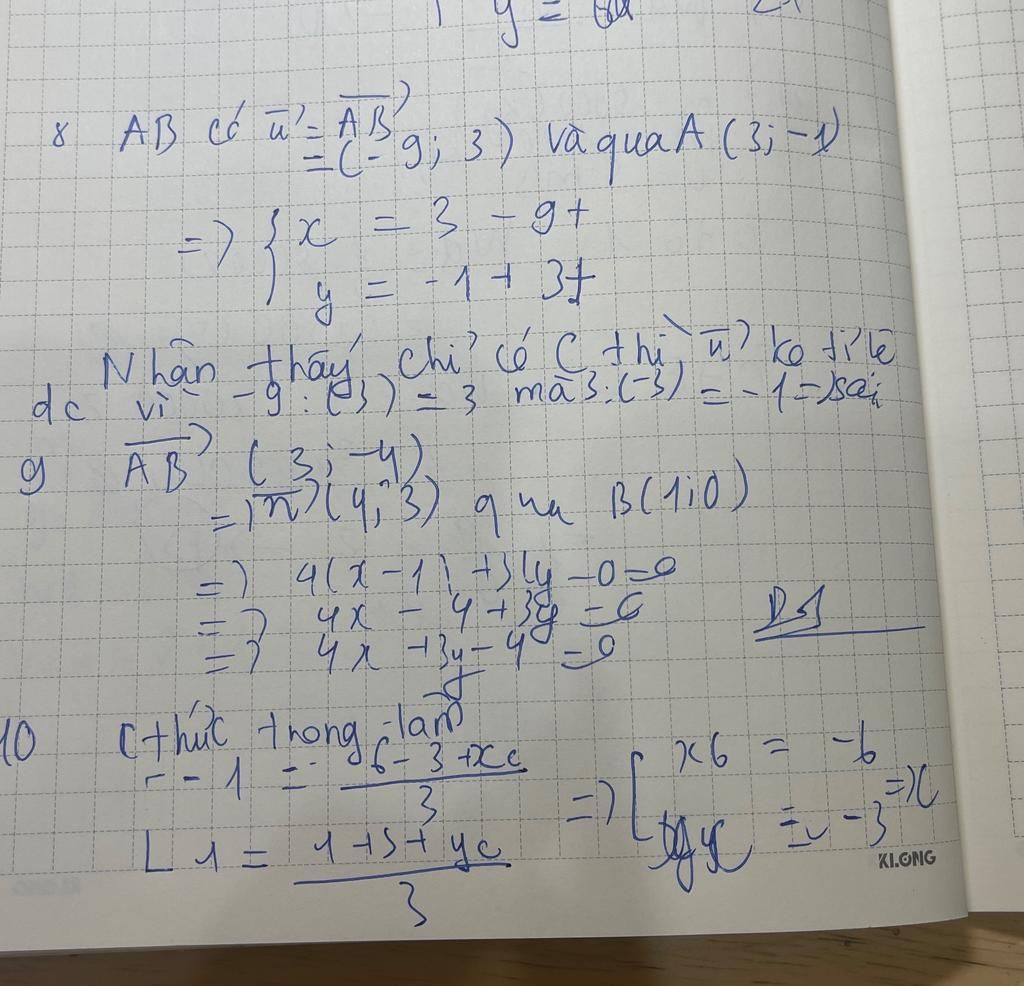 y =
8 AB có u⃗ = AB⃗
= (-9; 3) và qua A (3; -1)
=> { x = 3 - 9t
y = -1 + 3t
Nhận thấy chỉ có C thì u⃗ ko tỉ lệ
dc vì -9 : (-3) = 3 mà 3 : (-3) = -1 => sai
9 AB⃗ (3; -4)
=> n⃗ (4; 3) qua B(1; 0)
=> 4(x - 1) + 3(y - 0 = 0
=> 4x - 4 + 3y = 0
=> 4x + 3y - 4 = 0
10 Cthức trong tam
-1 = (6 - 3 + xc)/3
1 = (1 + 5 + yc)/3
=> [ x6 = -6
yc = -3
KLONG